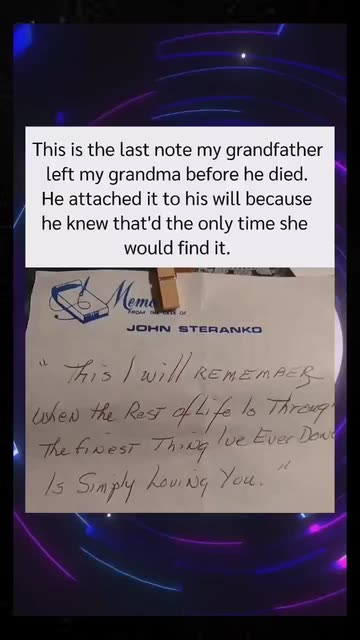 This is the last note my grandfather
left my grandma before he died.
He attached it to his will because
he knew that'd the only time she
would find it.
Memo
FROM THE DESK OF
JOHN STERANKO
"This I will REMEMBER
When the Rest of Life Is Through
The Finest Thing I've Ever Done
Is Simply Loving You."